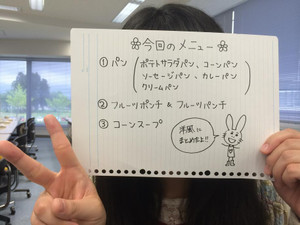 今回のメニュー
① パン（ポテトサラダパン、コーンパン
ソーセージパン、カレーパン
クリームパン）
② フルーツポンチ & フルーツパンチ
③ コーンスープ
洋風に
まとめたよ!!